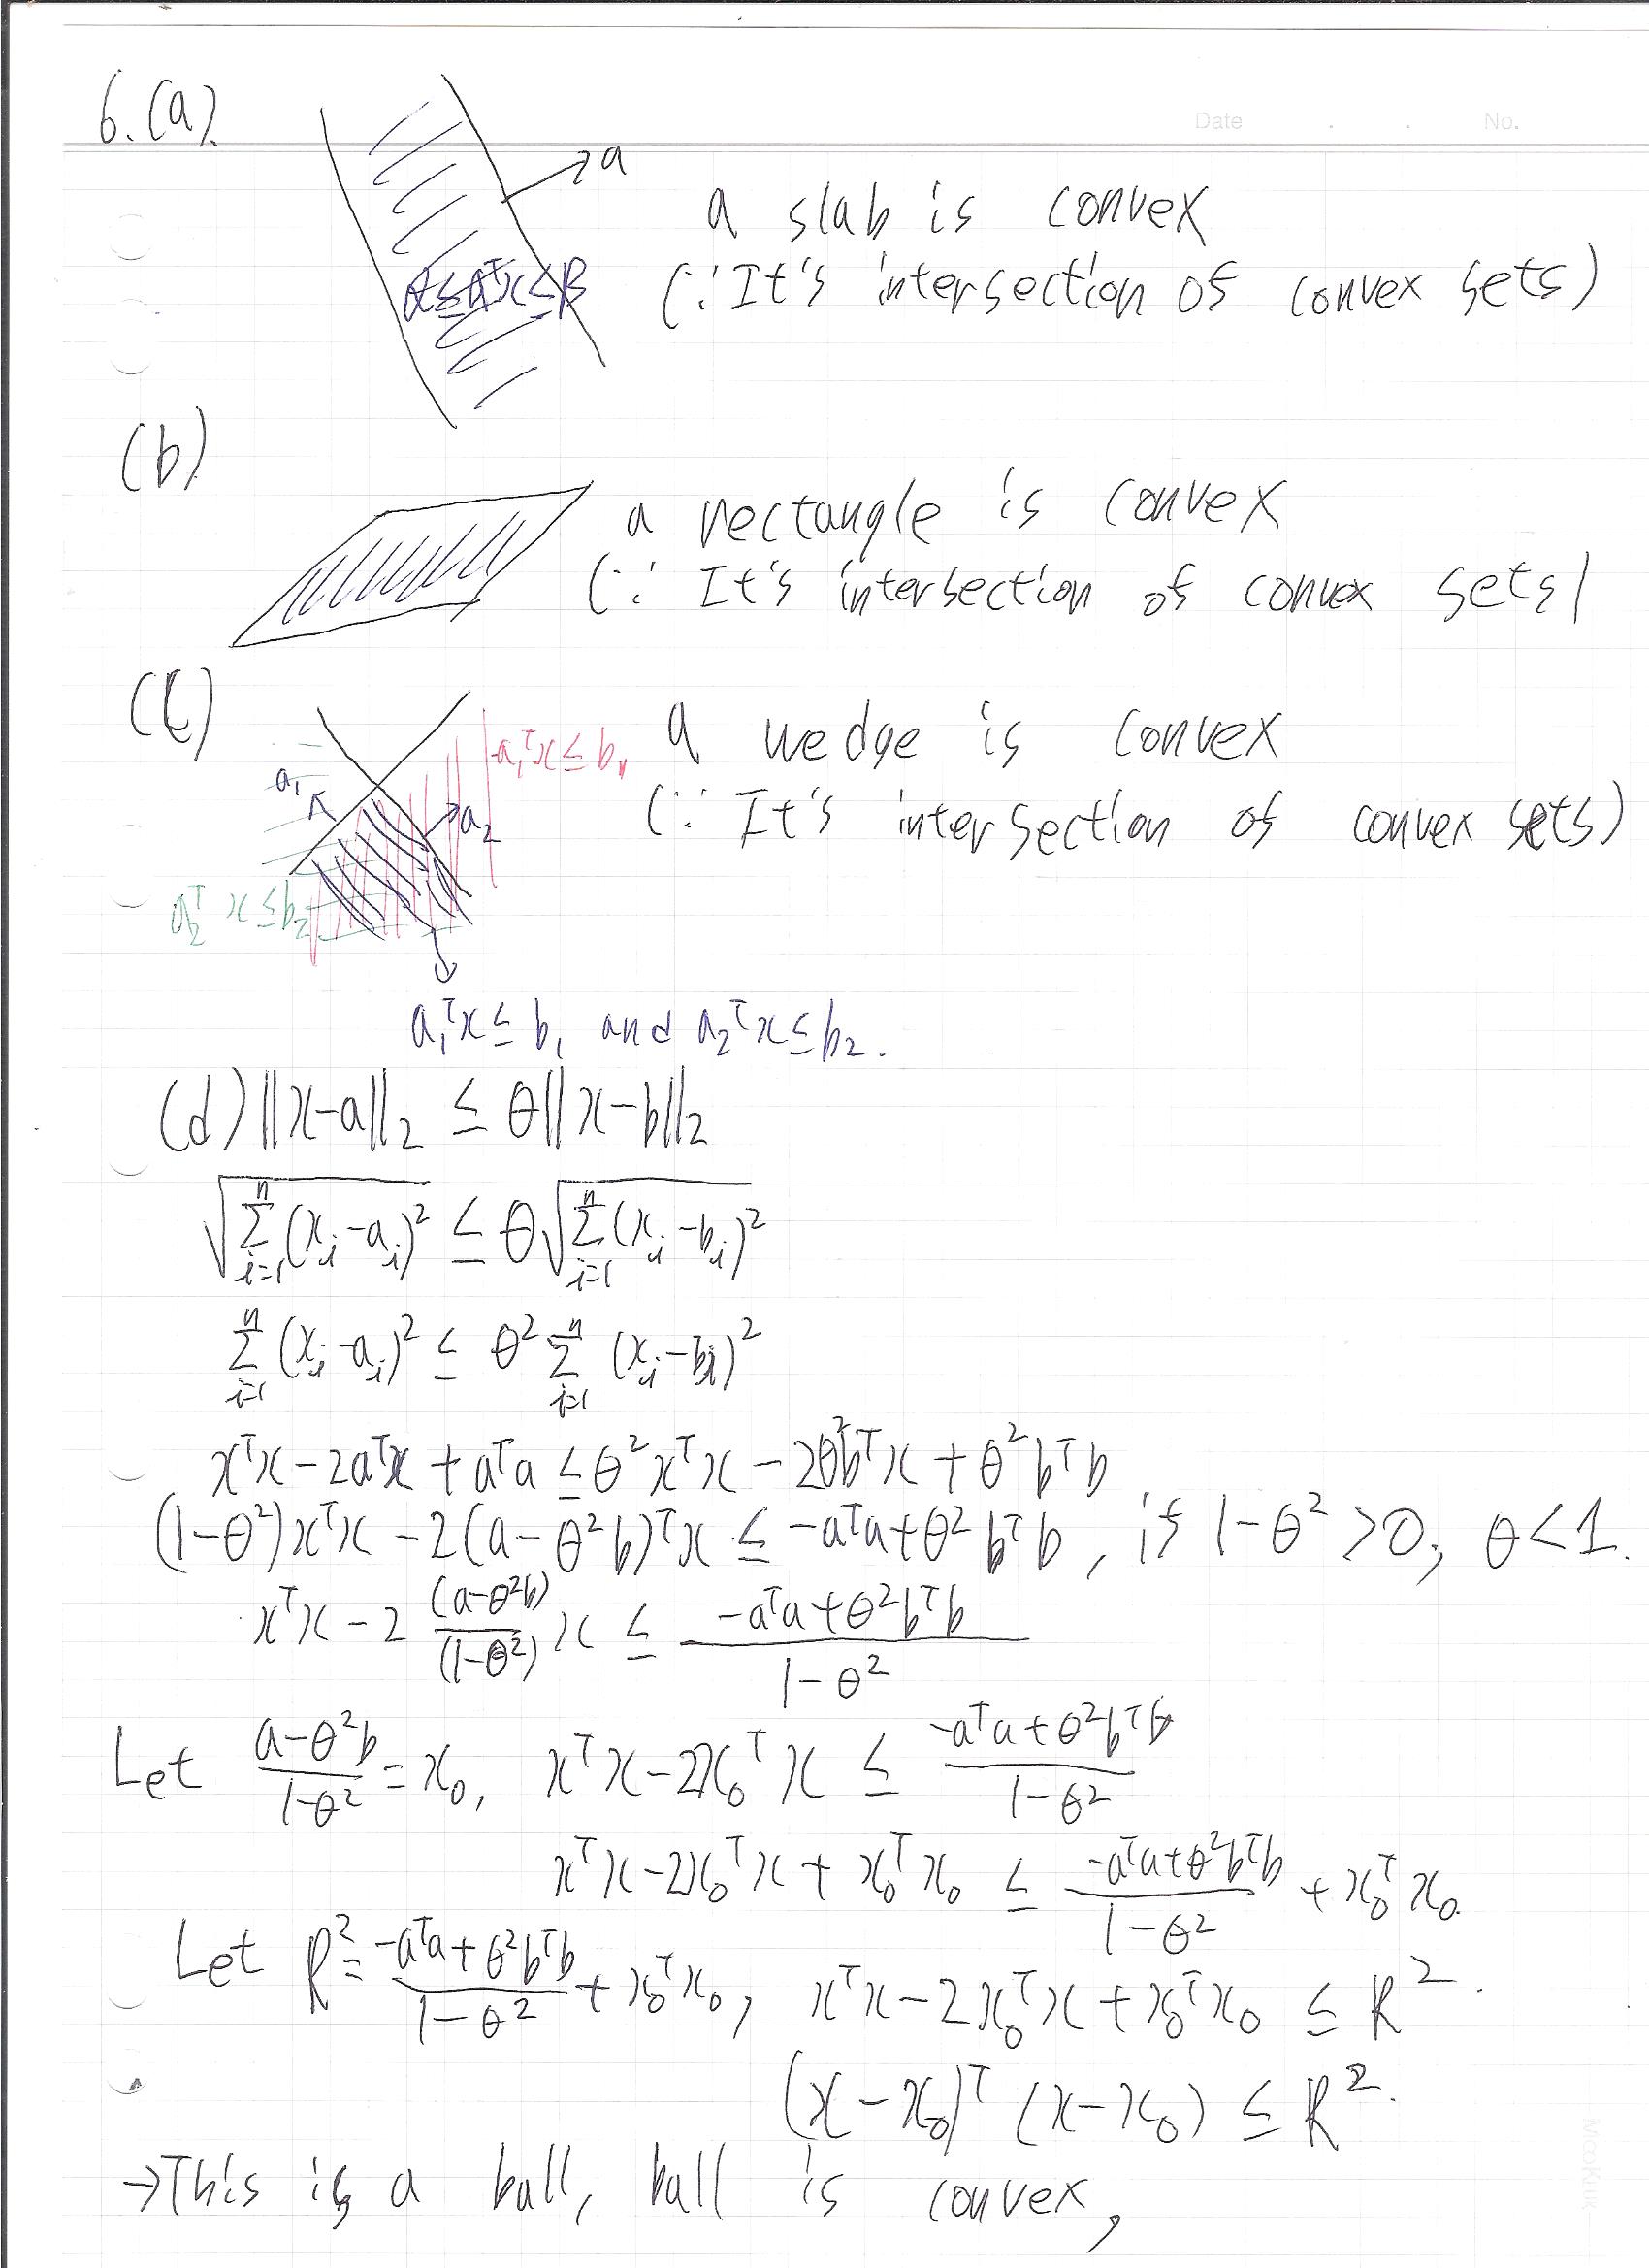 Date . . No.
6.(a).
a
a slab is convex
α≤aᵀx≤β
(∵It's intersection of convex sets)
(b)
a rectangle is convex
(∵ It's intersection of convex sets)
(c)
a₁
a₂
a₁ᵀx≤b₁
a₂ᵀx≤b₂
a wedge is convex
(∵ It's intersection of convex sets)
a₁ᵀx≤b₁ and a₂ᵀx≤b₂.
(d) ||x-a||₂ ≤ θ||x-b||₂
√(Σⁿᵢ₌₁(xᵢ-aᵢ)²) ≤ θ√(Σⁿᵢ₌₁(xᵢ-bᵢ)²)
Σⁿᵢ₌₁(xᵢ-aᵢ)² ≤ θ² Σⁿᵢ₌₁(xᵢ-bᵢ)²
xᵀx-2aᵀx+aᵀa ≤ θ²xᵀx-2θ²bᵀx+θ²bᵀb
(1-θ²)xᵀx-2(a-θ²b)ᵀx ≤ -aᵀa+θ²bᵀb, if 1-θ²>0, θ<1.
xᵀx-2 (a-θ²b)/(1-θ²) x ≤ (-aᵀa+θ²bᵀb)/(1-θ²)
Let (a-θ²b)/(1-θ²) = x₀, xᵀx-2x₀ᵀx ≤ (-aᵀa+θ²bᵀb)/(1-θ²)
xᵀx-2x₀ᵀx+x₀ᵀx₀ ≤ (-aᵀa+θ²bᵀb)/(1-θ²) + x₀ᵀx₀.
Let R² = (-aᵀa+θ²bᵀb)/(1-θ²) + x₀ᵀx₀, xᵀx-2x₀ᵀx+x₀ᵀx₀ ≤ R².
(x-x₀)ᵀ(x-x₀) ≤ R².
→This is a ball, ball is convex,